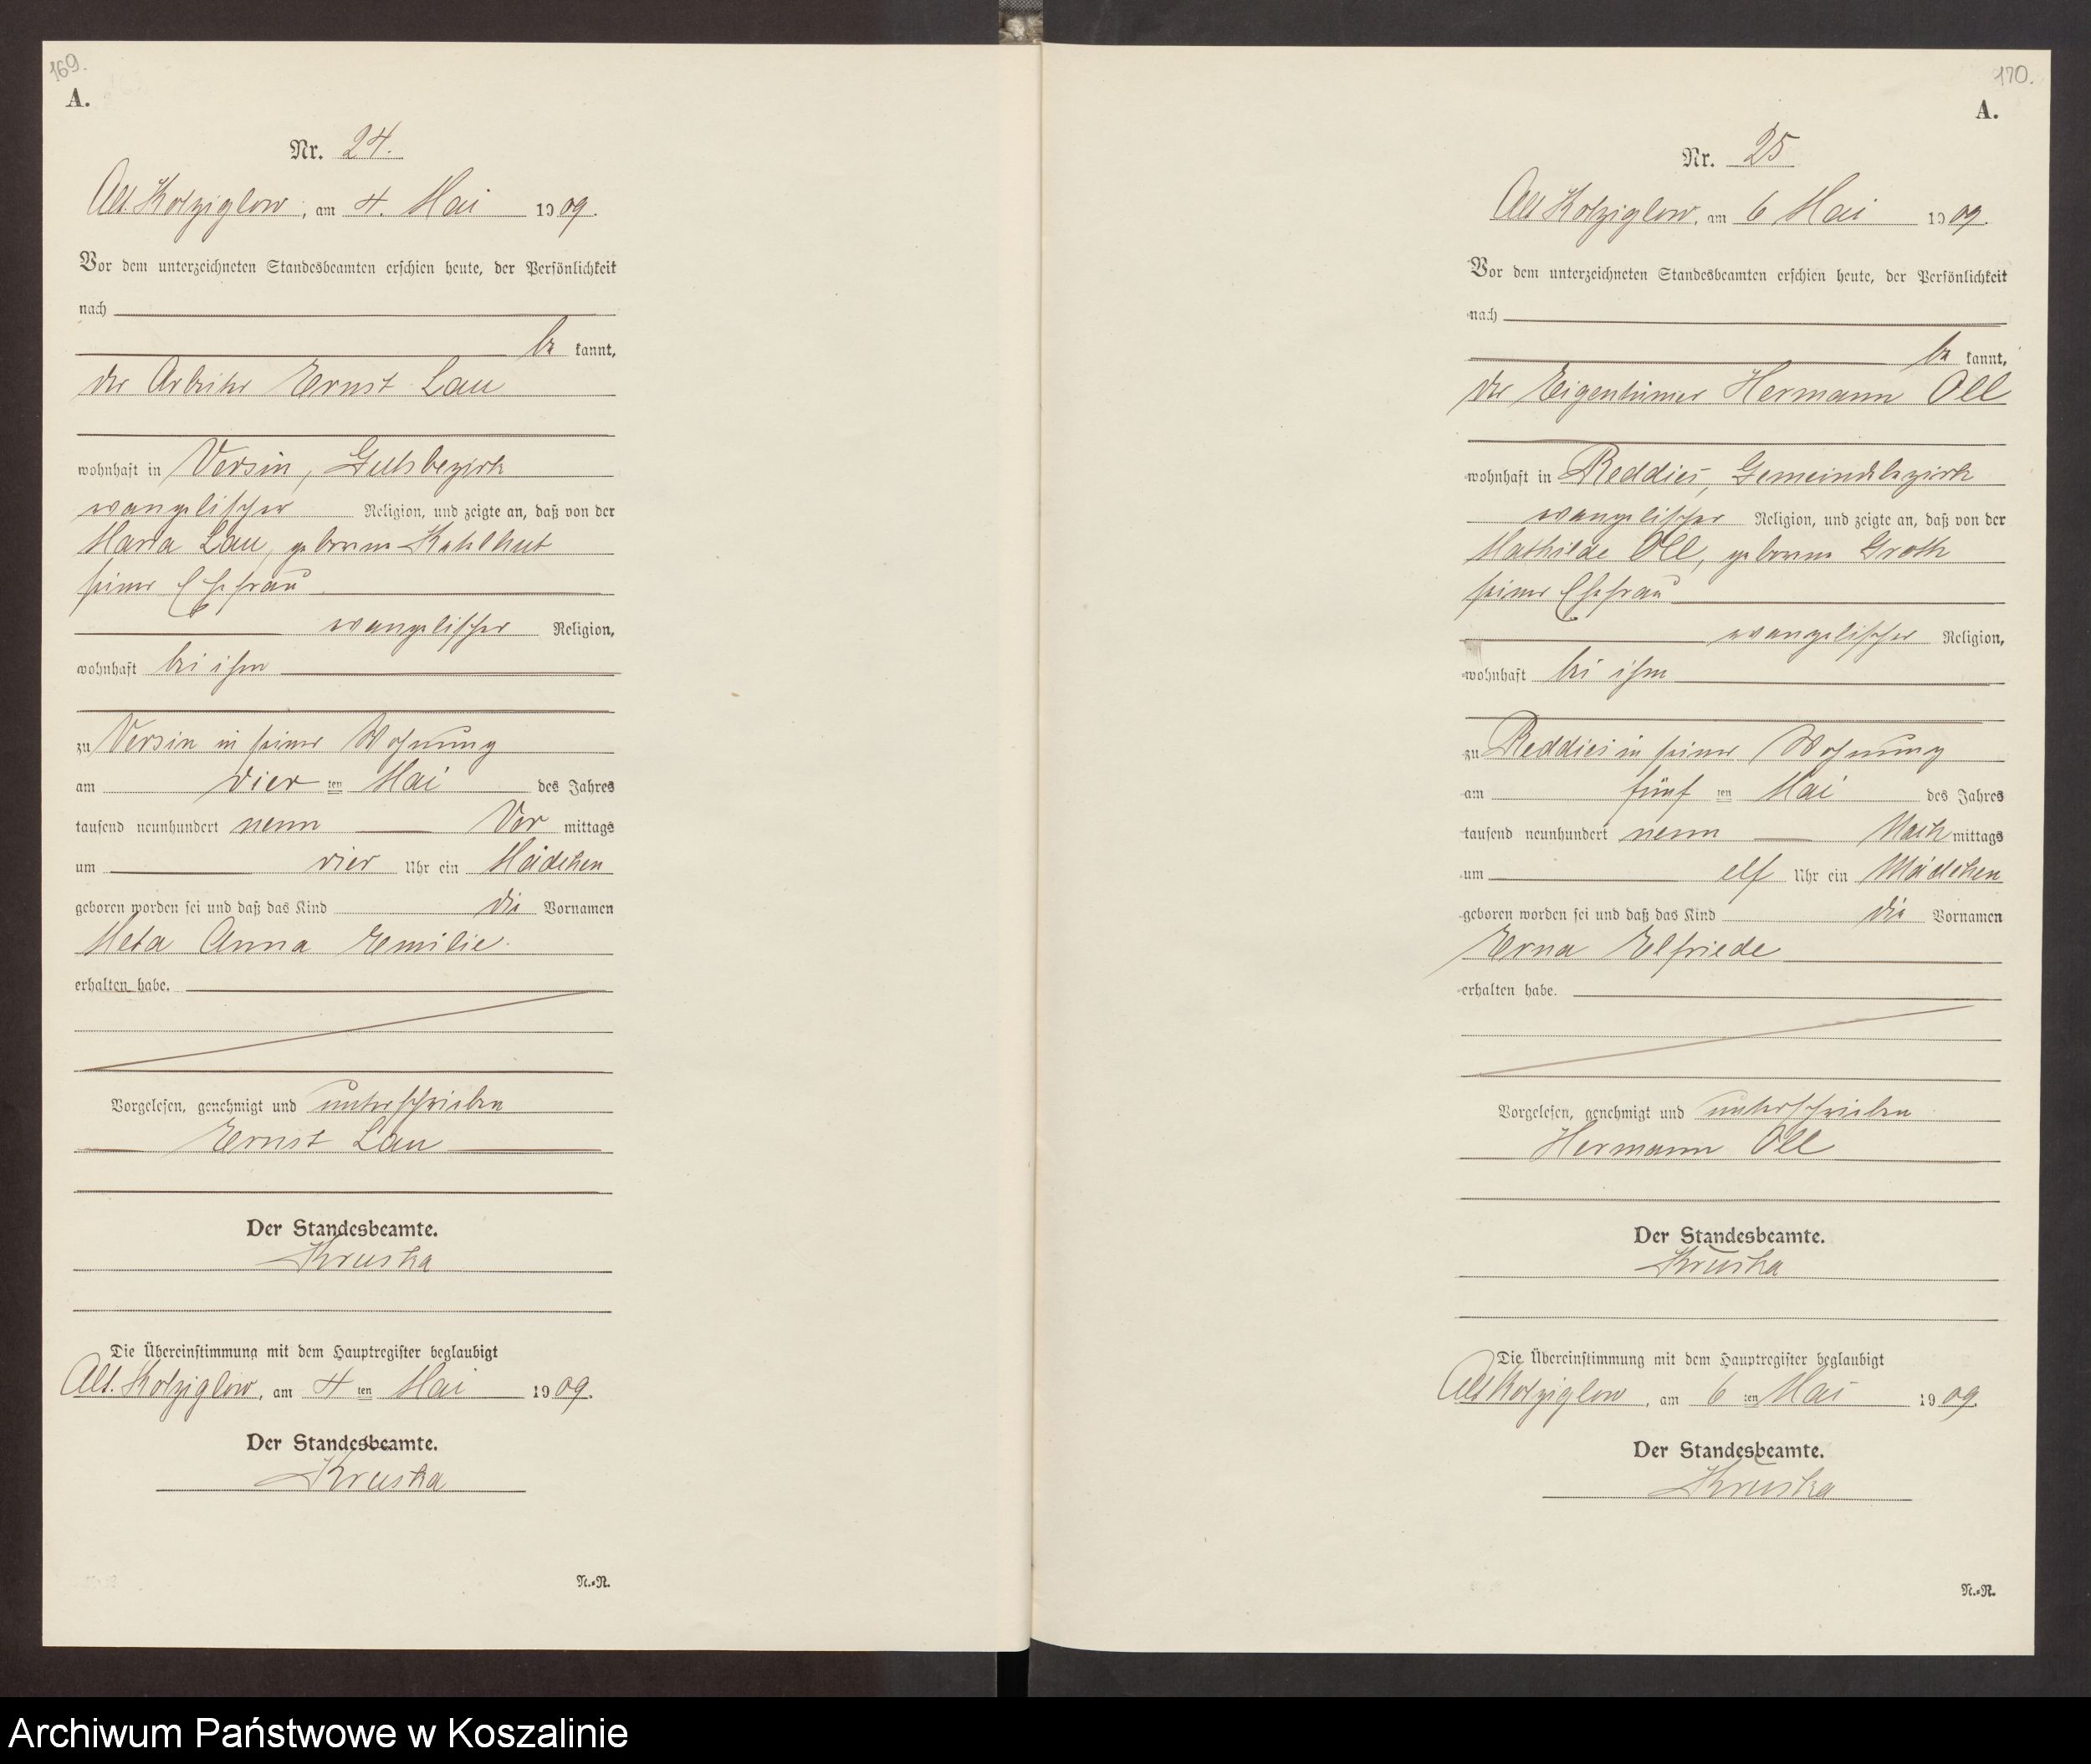 169.
A.
Nr. 24.
Alt. Kolziglow, am 4. Mai 1909.
Vor dem unterzeichneten Standesbeamten erschien heute, der Persönlichkeit
nach
be kannt,
der Arbeiter Ernst Lau
wohnhaft in Versin, Gutsbezirk
evangelischer Religion, und zeigte an, daß von der
Maria Lau, geborene Kahlhut
seiner Ehefrau
evangelischer Religion,
wohnhaft bei ihm
zu Versin in seiner Wohnung
am vier ten Mai des Jahres
tausend neunhundert neun Vor mittags
um vier Uhr ein Mädchen
geboren worden sei und daß das Kind die Vornamen
Meta Anna Emilie.
erhalten habe.
Vorgelesen, genehmigt und unterschrieben
Ernst Lau
Der Standesbeamte.
Kruska
Die Übereinstimmung mit dem Hauptregister beglaubigt
Alt. Kolziglow, am 4 ten Mai 1909.
Der Standesbeamte.
Kruska
N.-R.
170.
A.
Nr. 25
Alt Kolziglow, am 6 Mai 1909.
Vor dem unterzeichneten Standesbeamten erschien heute, der Persönlichkeit
nach
be kannt,
der Eigentümer Hermann Oll
wohnhaft in Reddies, Gemeindebezirk
evangelischer Religion, und zeigte an, daß von der
Mathilde Oll, geborene Groth
seiner Ehefrau
evangelischer Religion,
wohnhaft bei ihm
zu Reddies in seiner Wohnung
am fünf ten Mai des Jahres
tausend neunhundert neun Nach mittags
um elf Uhr ein Mädchen
geboren worden sei und daß das Kind die Vornamen
Erna Elfriede
erhalten habe.
Vorgelesen, genehmigt und unterschrieben
Hermann Oll
Der Standesbeamte.
Kruska
Die Übereinstimmung mit dem Hauptregister beglaubigt
Alt Kolziglow, am 6 ten Mai 1909.
Der Standesbeamte.
Kruska
N.-R.
Archiwum Państwowe w Koszalinie